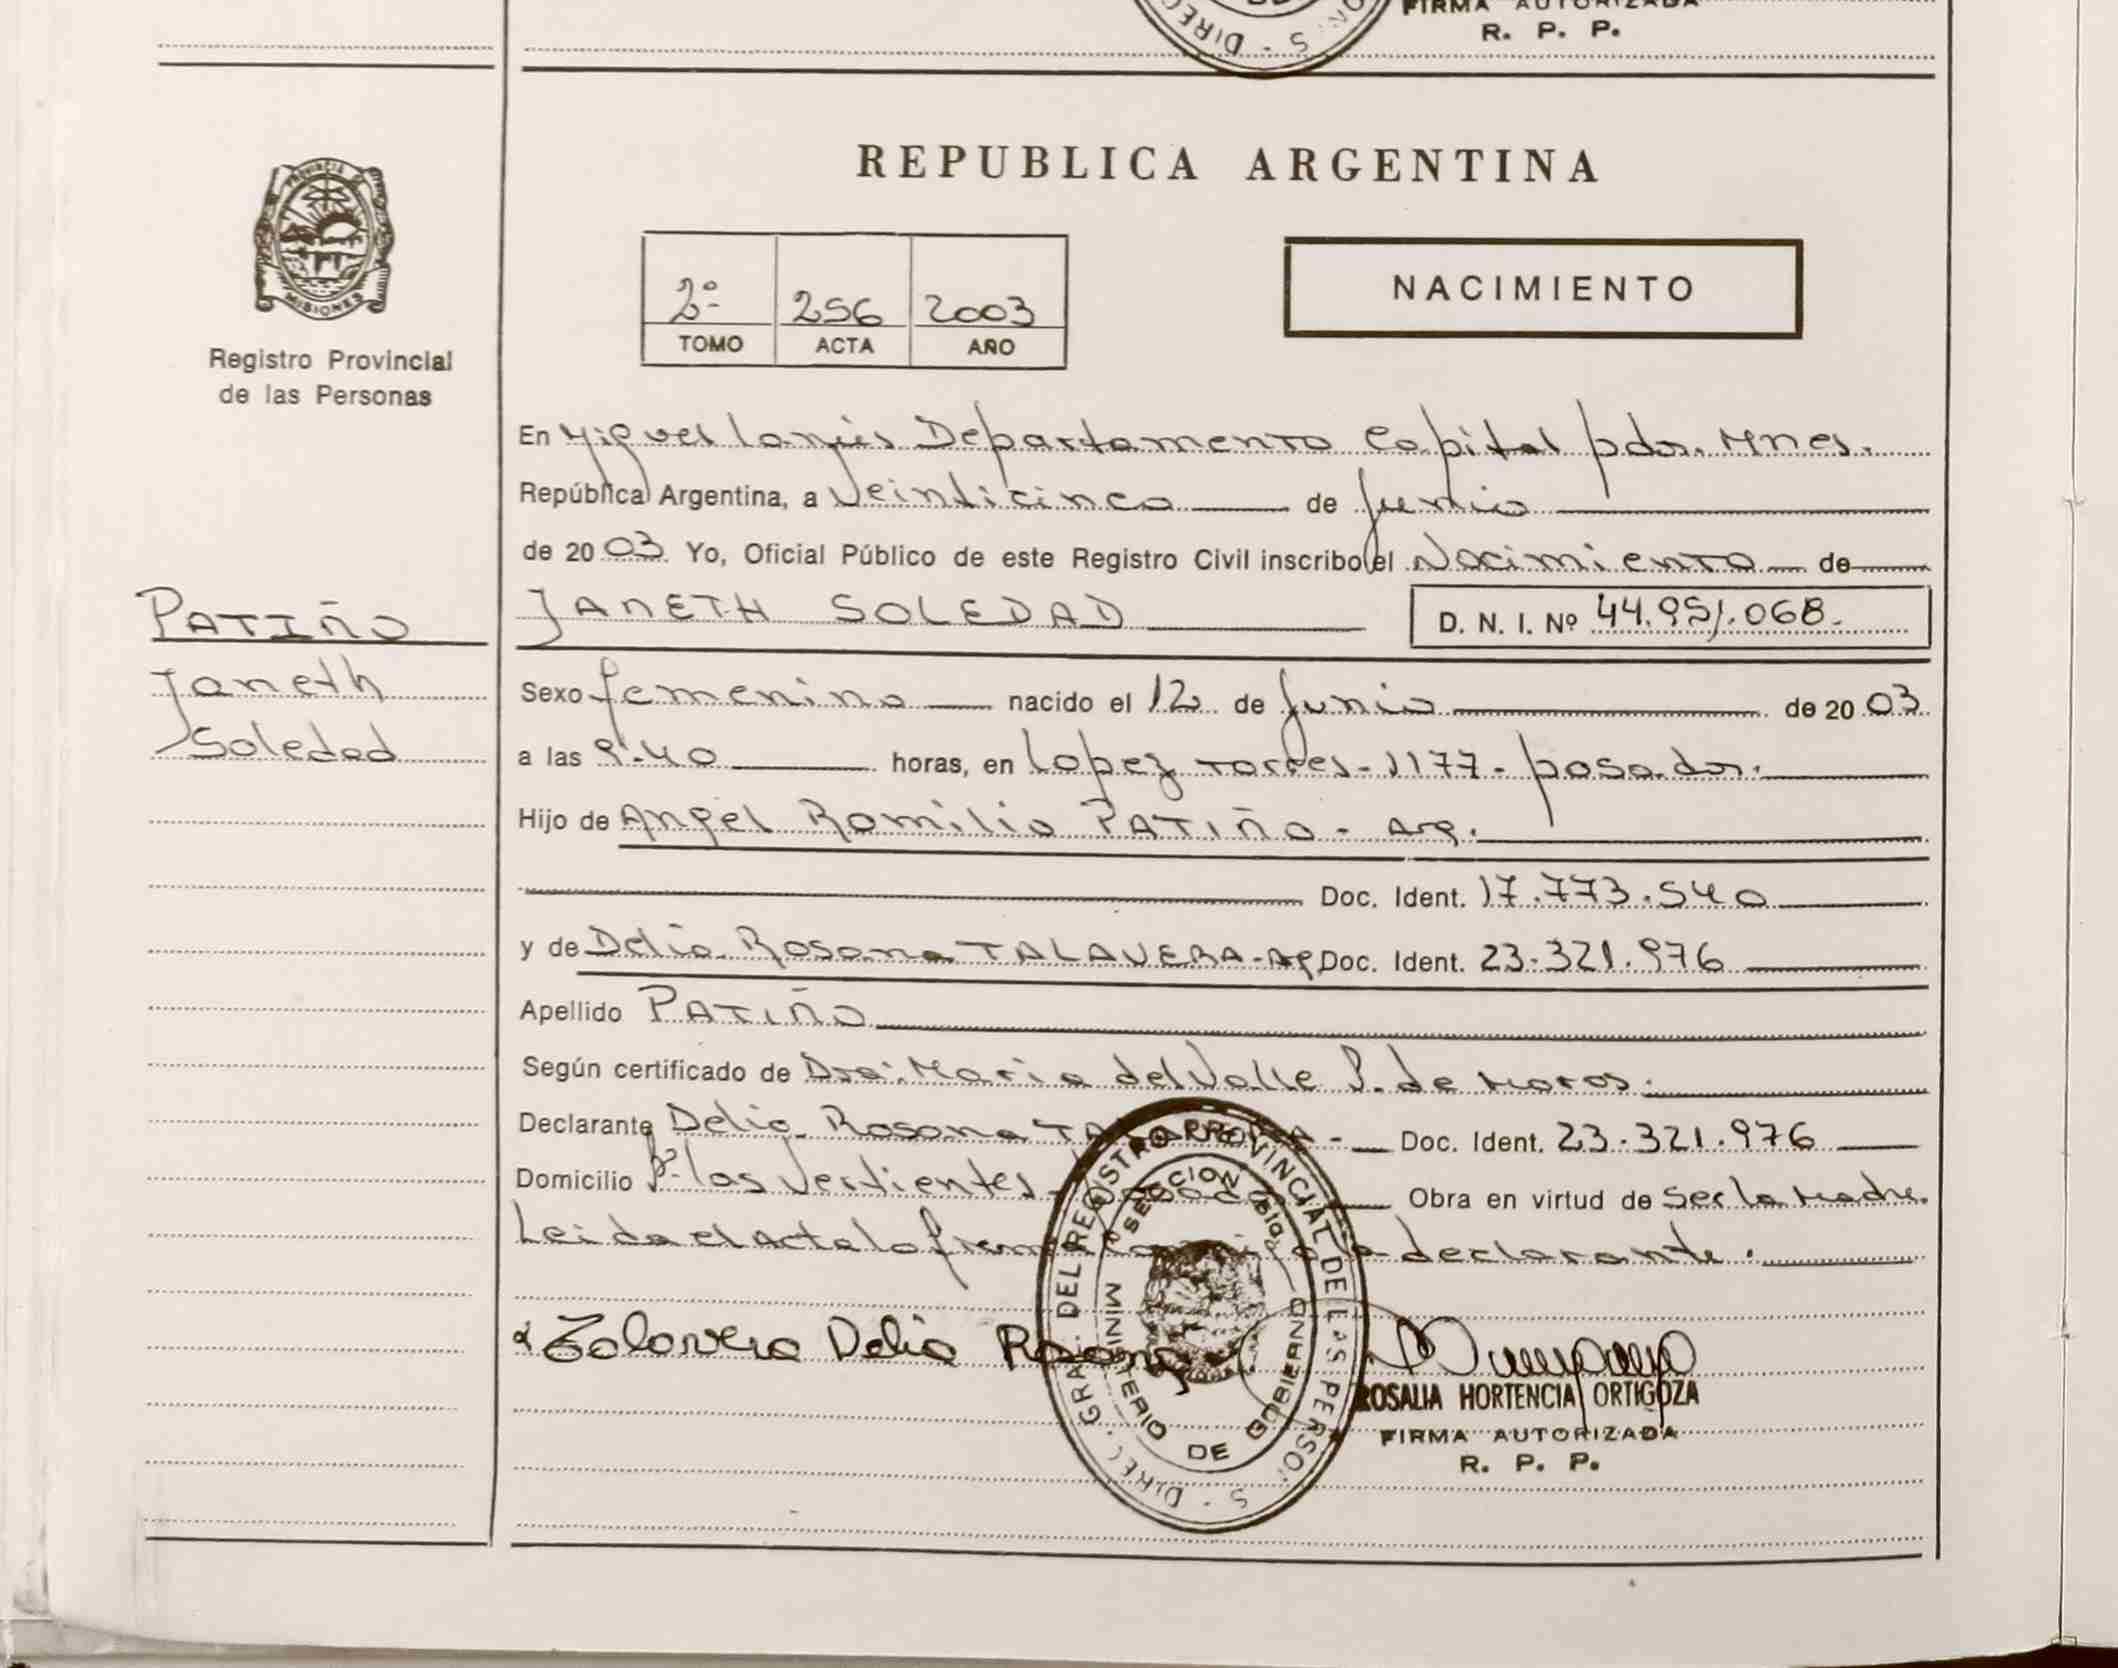 FIRMA AUTORIZADA
R. P. P.
S - DIREC
REPUBLICA ARGENTINA
PROVINCIA DE
MISIONES
Registro Provincial
de las Personas
2º 256 2003
TOMO ACTA AÑO
NACIMIENTO
En Miguel Lanús Departamento Capital pdas. Mnes.
República Argentina, a Veinticinco de Junio
de 2003 Yo, Oficial Público de este Registro Civil inscribo el Nacimiento de
PATIÑO
Janeth
Soledad
JANETH SOLEDAD D. N. I. Nº 44.951.068.
Sexo femenino nacido el 12 de Junio de 2003
a las 9:40 horas, en Lopez Torres - 1177 - posadas.
Hijo de Angel Romilio PATIÑO - Arg.
Doc. Ident. 17.773.540
y de Delia Rosana TALAVERA - Arg Doc. Ident. 23.321.976
Apellido PATIÑO
Según certificado de Dra. Maria del Valle P. de Maros.
Declarante Delia Rosana TALAVERA - Doc. Ident. 23.321.976
Domicilio Bº las Vertientes - Posadas Obra en virtud de Ser la Madre.
Leida el Acta la firma conmigo la declarante.
Talavera Delia Rosana
DIREC. GRAL. DEL REGISTRO PROVINCIAL DE LAS PERSONAS
MINISTERIO DE GOBIERNO
ROSALIA HORTENCIA ORTIGOZA
FIRMA AUTORIZADA
R. P. P.